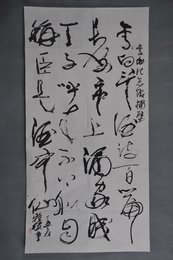 李白斗酒詩百篇
長安市上酒家眠
天子呼来不上船自
稱臣是酒中仙